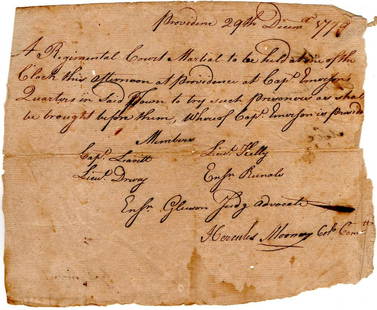 Providence 29th Decemr 1778
A Regimental Court Martial to be held at of the
Clock this afternoon at Providence at Capt Emersons
Quarters in Said Town to try such Prisoners as shal
be brought before them, Whereof Capt Emerson is Preside
Members
Capt Leavitt Lieut Tilly
Lieut Drury Ensn Runals
Ensn Gleason Judg Advocate
Hercules Mooney Colo Comt